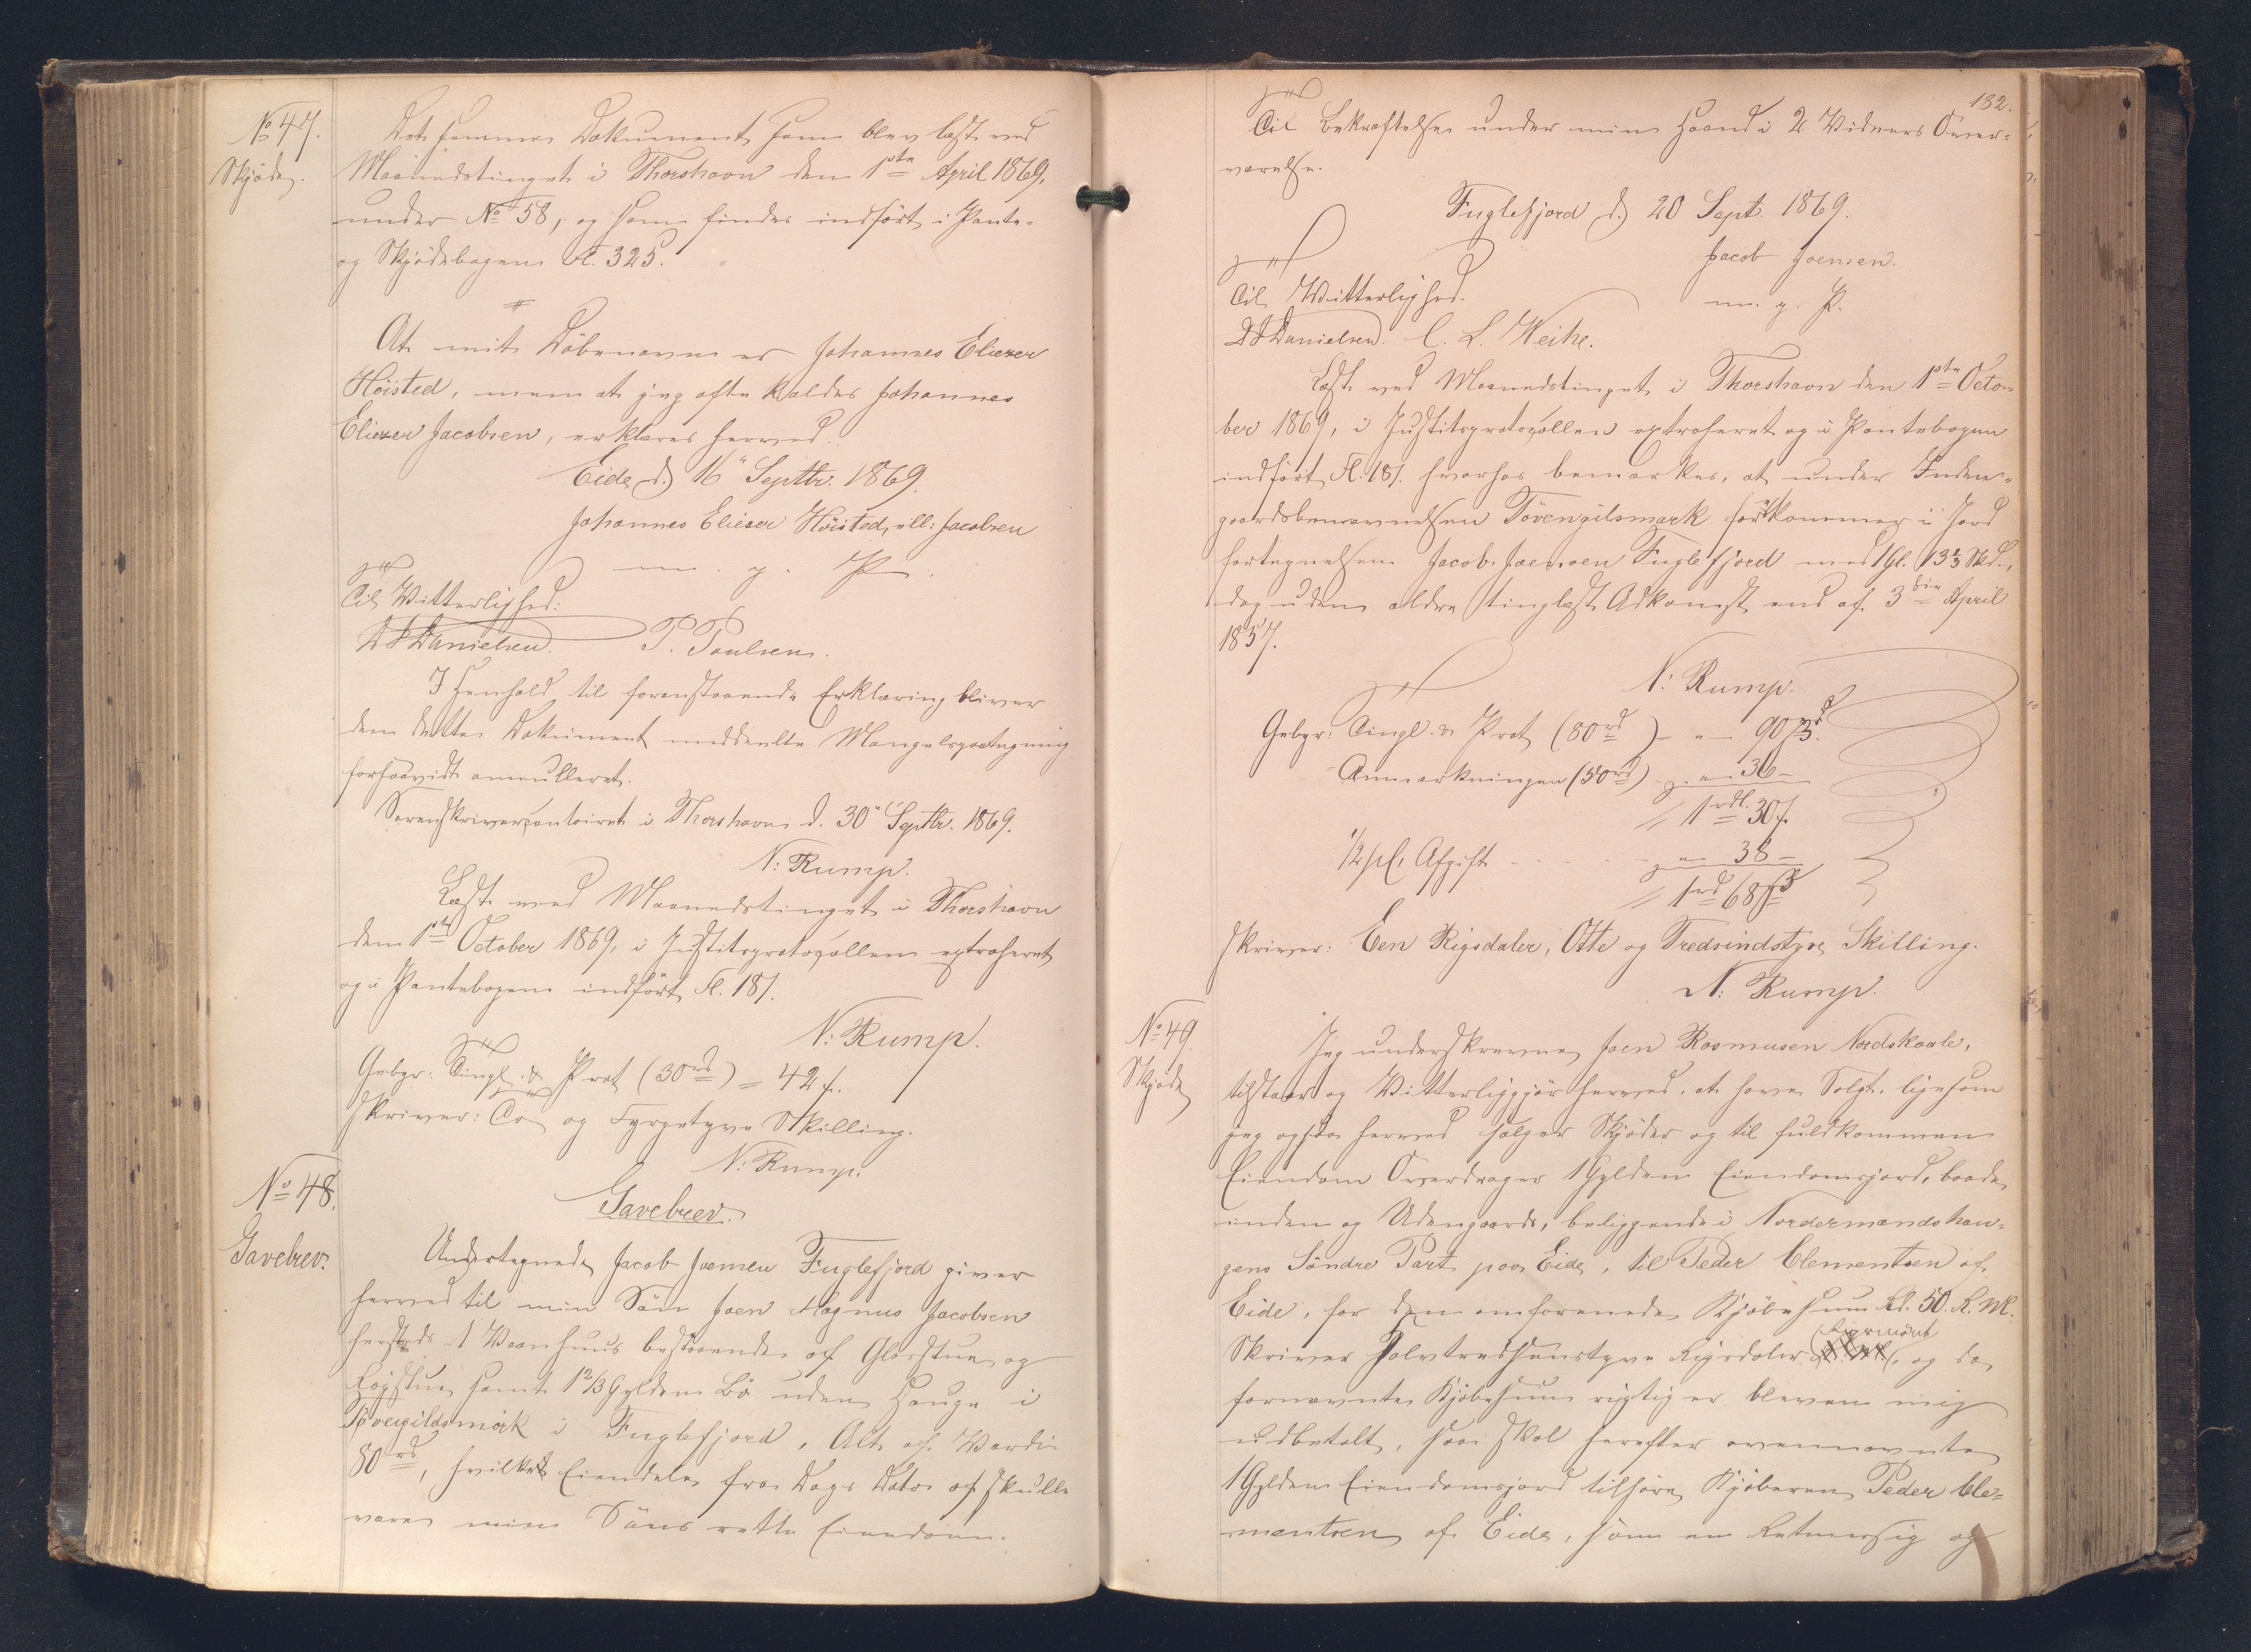 No 47.
Skjöde.
Det samme Dokument som blev læst ved
Maanedstinget i Thorshavn den 1ste April 1869,
under No 58, og som findes indført i Pante-
og Skjödebogen Fl. 325.
At mit Döbenavn er Johannes Eliezer
Höisted, men at jeg ofte kaldes Johannes
Eliezer Jacobsen, erklæres herved.
Eide d. 16 Septbr. 1869.
Johannes Elieser Höisted, ell: Jacobsen
m. g. P.
Til Vitterlighed:
D Danielsen. P. Poulsen.
I Henhold til foranstaaende Erklæring bliver
den dette Dokument meddeelte Mangelspaategning
forsaavidt annulleret.
Sorenskrivercontoiret i Thorshavn d. 30 Septbr. 1869.
N: Rump.
Læst ved Maanedstinget i Thorshavn
den 1ste October 1869, i Justitsprotocollen extraheret
og i Pantebogen indført Fl. 181.
N: Rump.
Gebyr: Tingl. & Prot (30rd) = 42 s.
skriver: To og Fyrgetyve Skilling.
N: Rump.
No 48.
Gavebrev.
Gavebrev.
Undertegnede Jacob Joensen Fuglefjord giver
herved til min Sön Joen Magnus Jacobsen
hersteds 1 Vaanhuus bestaaende af Glasstue og
Røgstue samt 1 2/3 Gylden Bö uden Hauge i
Tövengildsmörk i Fuglefjord, Alt af Værdi
80rd, hvilket Eiendele fra Dags Dato af skulle
være min Söns rette Eiendom.
132.
Til Bekræftelse under min Haand i 2 Vidners Over-
værelse.
Fuglefjord d. 20 Sept. 1869.
Jacob Joensen.
m. g. P.
Til Vitterlighed.
D Danielsen. C. L. Weihe.
Læst ved Maanedstinget i Thorshavn den 1ste Octo-
ber 1869, i Justitsprotocollen extraheret og i Pantebogen
indført Fl. 181. hvorhos bemærkes, at under Inden-
gaardsbenævnelsen Tövengilsmørk forekommer i Jord
fortegnelsen Jacob Joensen Fuglefjord med 1 Gl. 13 1/3 Skd.,
dog uden ældre tinglæst Adkomst end af 3die April
1857.
N: Rump.
Gebyr: Tingl. & Prot (80rd) - " - 90 s.
Anmærkningen (50rd) - " - 36 -
1 rdl. 30 s.
1/2 pCt. Afgift - " - 38 -
1rd 68 s
skriver: Een Rigsdaler, Otte og Tredsindstyve Skilling.
N: Rump.
No 49.
Skjöde
Jeg underskrevne Joen Rasmusen Nordskaale,
tilstaar og Vitterliggjör herved, at have Solgt, ligesom
jeg ogsaa herved sælger Skjöder og til fuldkommen
Eiendom Overdrager 1 Gylden Eiendomsjord, baade
inden og Udengaards, beliggende i Nordermandshau-
gens Söndre Part paa Eide, til Peder Clementsen af
Eide, for den omforenede Kjöbesum Rd. 50. R. M.
Skriver Halvtredsenstyve Rigsdaler Rigsmönt, og da
fornævnte Kjöbesum rigtig er bleven mig
udbetalt, saa skal herefter ovennævnte
1 Gylden Eiendomsjord tilhøre Kjöberen Peder Cle-
mentsen af Eide, som en Retmæssig og